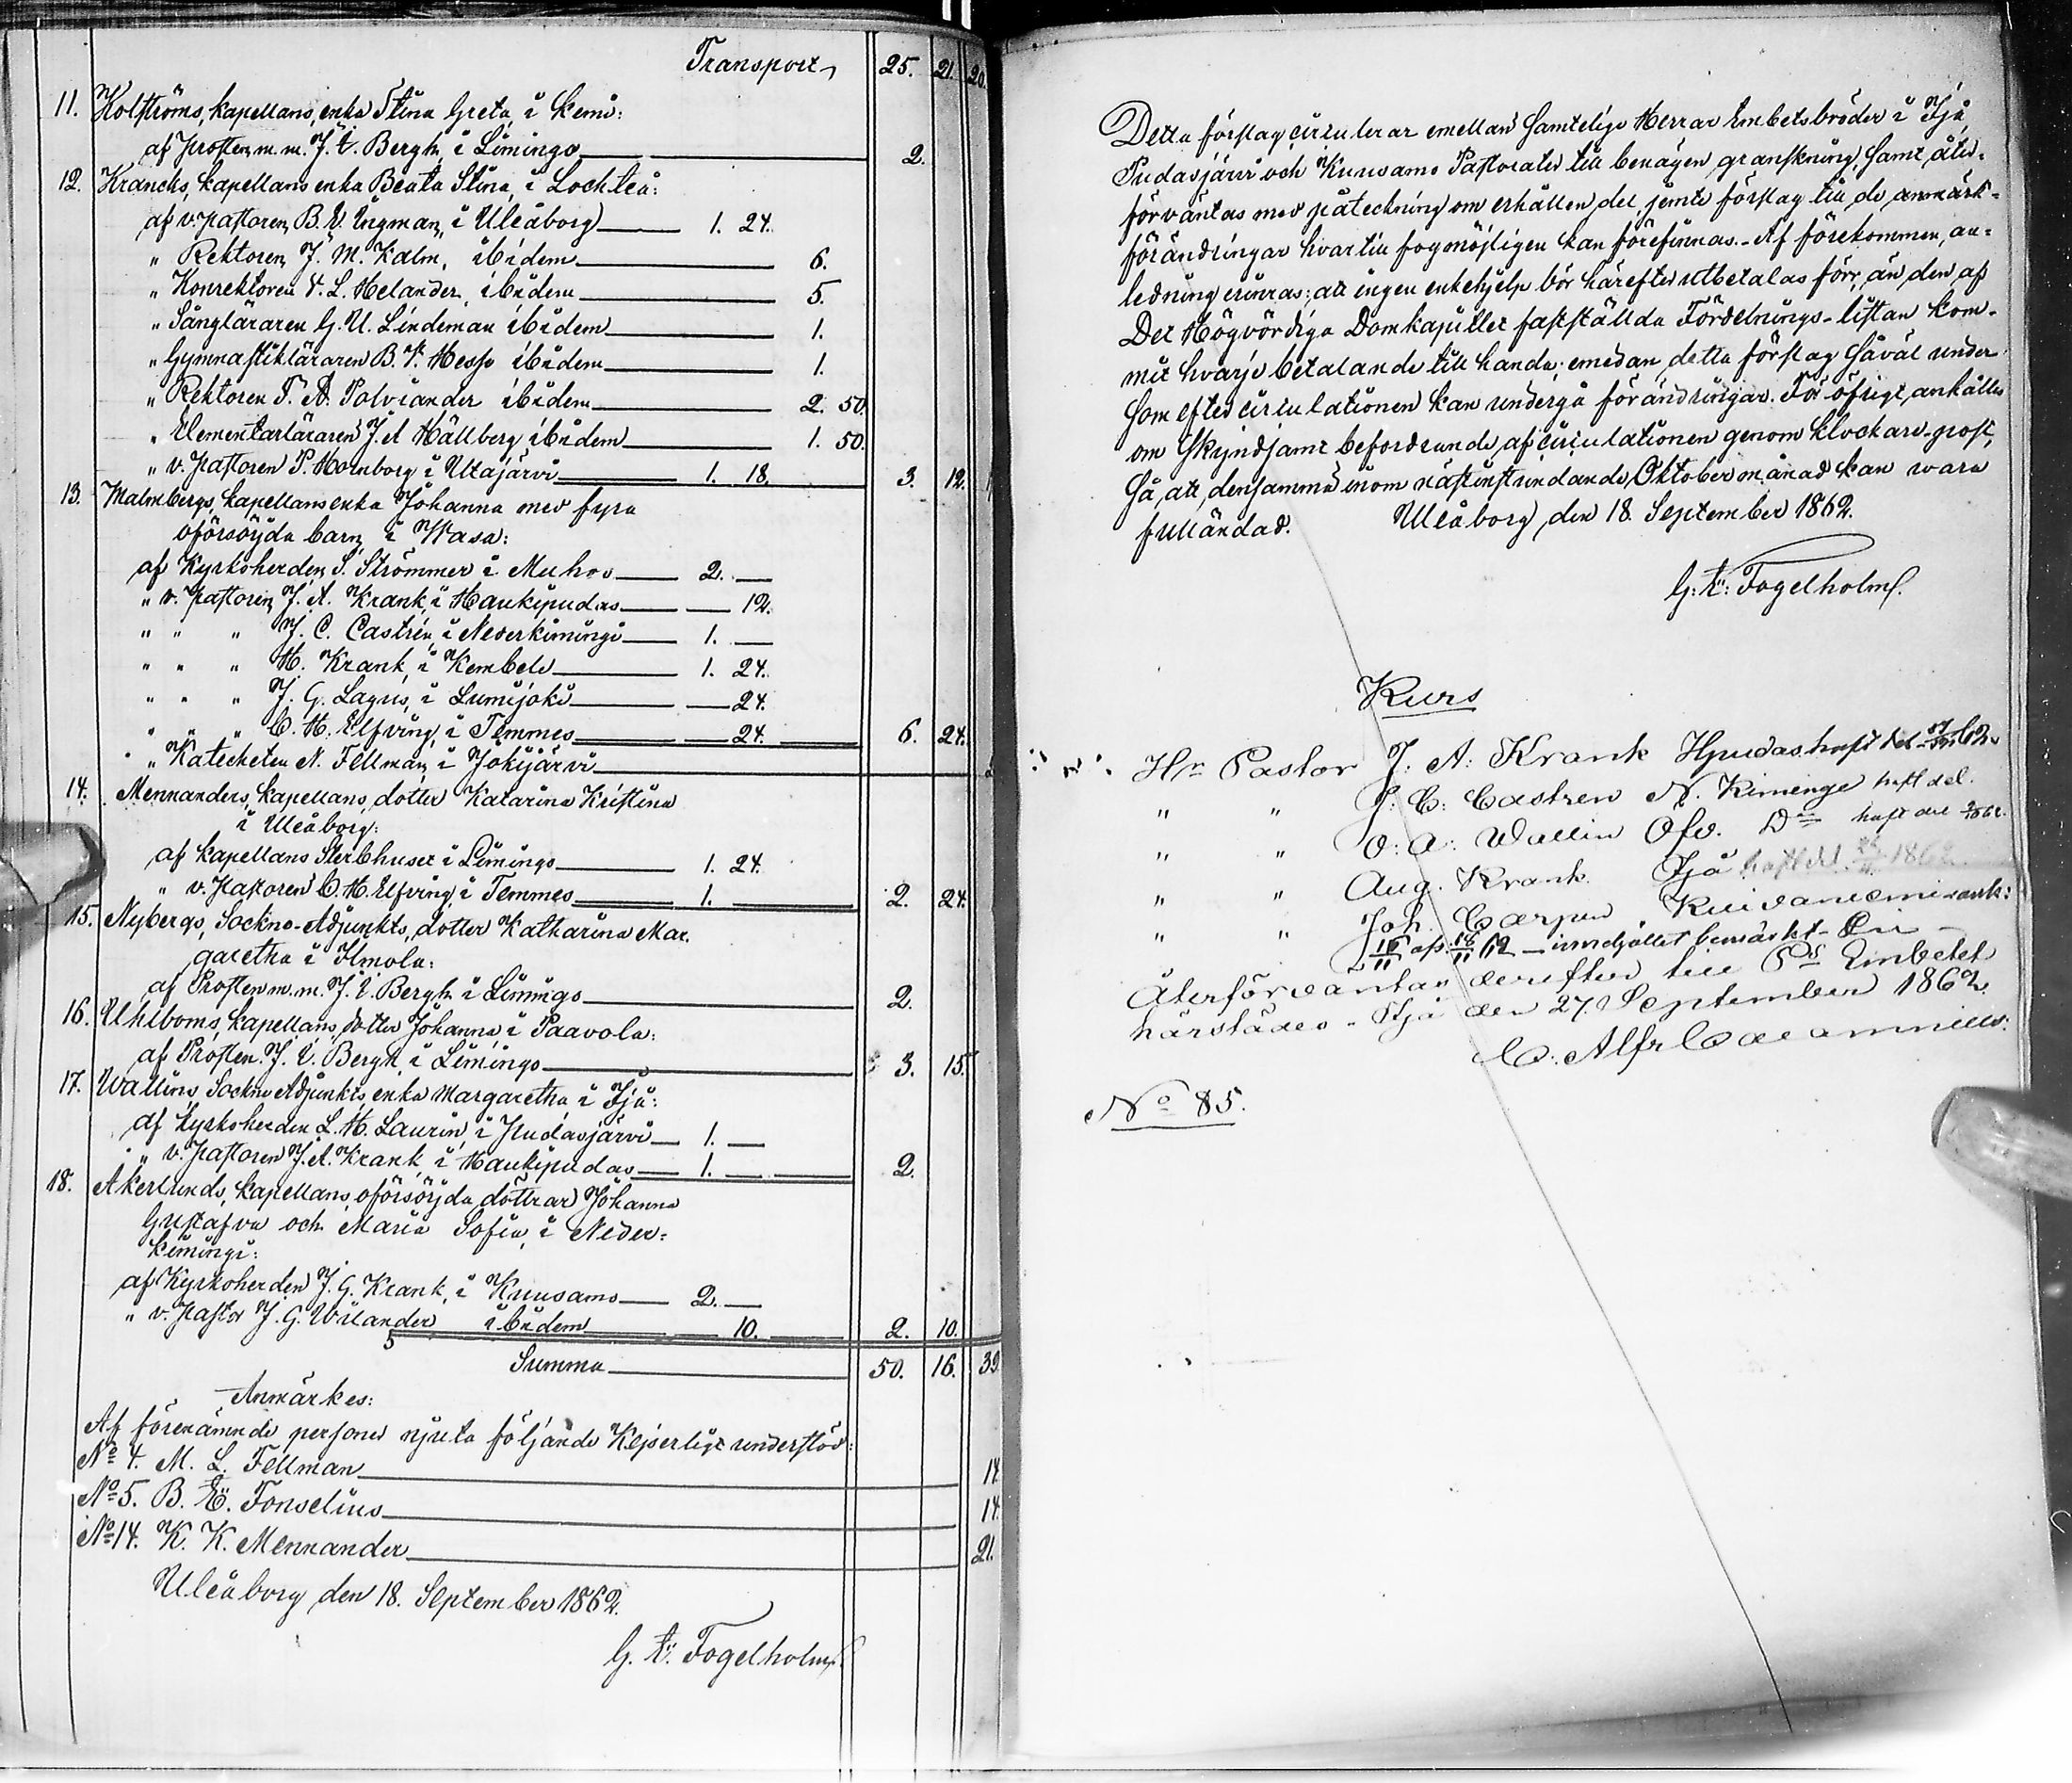 Transport, 25. 21. 20.
11. Holströms, kapellans, enka Stina Greta, i Kemi:
af Prosten m. m. J. V. Bergh, i Limingo 2.
12. Krancks, kapellans enka Beata Stina, i Lochteå:
af v. pastoren B. V. Ingman, i Uleåborg 1. 24.
" Rektoren J. M. Kalm, ibidem 6.
" Konrektoren A. L. Helander, ibidem 5.
" Sångläraren G. U. Lindeman ibidem 1.
" Gymnastikläraren B. F. Hesse ibidem 1.
" Rektoren T. A. Polviander ibidem 2. 50.
" Elementarläraren J. A Hällberg ibidem 1. 50.
" v. pastoren P. Hornborg i Utajärvi 1. 18. 3. 12.
13. Malmbergs, kapellans enka Johanna med fyra
oförsörjda barn, i Wasa:
af Kyrkoherden S. Strömmer i Muhos 2. —
" v. pastoren J. A. Krank, i Haukipudas — 12.
" " " J. C. Castrén, i Nederkimingi 1. —
" " " H. Krank, i Kembele 1. 24.
" " " J. G. Lagus, i Lumijoki — 24.
" " " C. H. Elfving, i Temmes — 24. 6. 24.
" Katecheten N. Fellman, i Jokijärvi
14. Mennanders, kapellans, dotter Katarina Kristina
i Uleåborg:
af kapellans Sterbhuset i Limingo 1. 24.
" v. Pastoren C. H. Elfving, i Temmes 1. 2. 24.
15. Nybergs, Sockne-Adjunkts, dotter Katharina Mar.
garetha i Ilmola:
af Prosten m. m. J. V. Bergh i Limingo 2.
16. Uhlboms, kapellans, dotter Johanna i Paavola:
af Prosten. J. V. Bergh, i Limingo 3. 15.
17. Wallins Sockne Adjunkts enka Margaretha i Ijå:
af Kyrkoherden L. H. Laurin, i Pudasjärvi 1. —
" v. pastoren J. A. Krank, i Haukipudas 1. — 2.
18. Åkerlunds, kapellans, oförsörjda döttrar Johanna
Gustafva och Maria Sofia, i Neder=
kimingi:
af Kyrkoherden J. G. Krank, i Kuusamo 2. —
" v. pastor J. G. Wilander ibidem — 10. 2. 10.
Summa 50. 16. 39.
Anmärkes:
Af förenämnde personer njuta följande Kejserligt understöd:
No 4. M. L. Fellman 14.
No 5. B. E. Fonselius 14.
No 14. K. K. Mennander 21.
Uleåborg den 18. September 1862.
G. E. Fogelholm.
Detta förslag cirkulerar emellan Samtelige Herrar Embetsbröder i Ijå,
Pudasjärvi och Kuusamo Pastorater till benägen granskning, Samt åter=
förväntas med påteckning om erhållen del, jemte förslag till de anmärk=
förändringar hvartill fogmöjligen kan förefinnas. Af förekommen, an=
ledning erinras: att ingen enkehjelp bör härefter utbetalas förr, än den af
Det Högvördiga Domkapitlet fastställda Fördelnings-listan kom-
mit hvarje betalande till handa, emedan detta förslag såväl under
Som efter cirkulationen kan undergå förändringar. För öfrigt, anhålles
om Skyndsamt befordrande af cirkulationen genom Klockare-post,
Så, att densamma inom nästinstundande Oktober månad kan vara
fulländad. Uleåborg, den 18. September 1862.
G: E: Fogelholm.
Kurs
Hr Pastor J: A: Krank Hpudas haft del
" " J: C: Castren N. Kiminge haft del.
" " O: A: Wallin Öfv. Do haft del
" " Aug. Krank. Ijå haft del 1862
" " Joh. Carpen Kuivaniemi
Återförväntas derefter till Ps Embetet
härstädes. Ijå den 27. September 1862.
No 85.